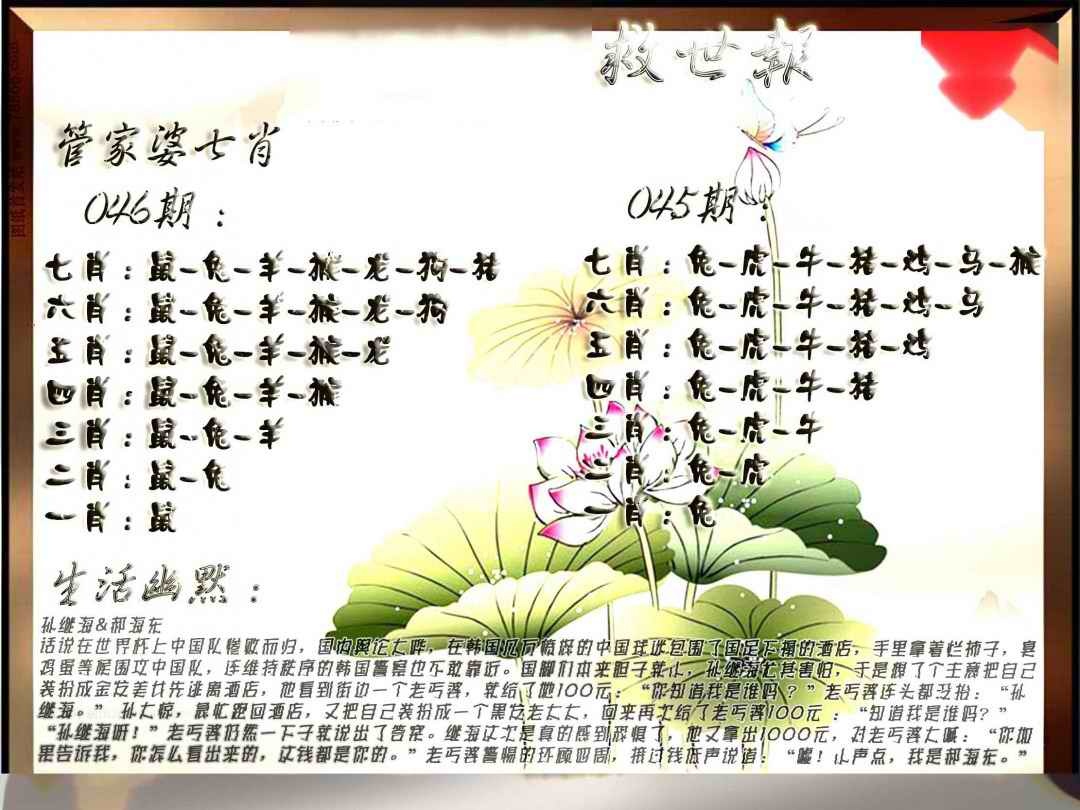 救世報
管家婆七肖
046期：
七肖：鼠-兔-羊-猴-龙-狗-猪
六肖：鼠-兔-羊-猴-龙-狗
五肖：鼠-兔-羊-猴-龙
四肖：鼠-兔-羊-猴
三肖：鼠-兔-羊
二肖：鼠-兔
一肖：鼠
045期：
七肖：兔-虎-牛-猪-鸡-马-猴
六肖：兔-虎-牛-猪-鸡-马
五肖：兔-虎-牛-猪-鸡
四肖：兔-虎-牛-猪
三肖：兔-虎-牛
二肖：兔-虎
一肖：兔
生活幽默：
孙继海&郝海东
话说在世界杯上中国队惨败而归，国内舆论大哗，在韩国几万愤怒的中国球迷包围了国足下榻的酒店，手里拿着烂柿子，臭
鸡蛋等候围攻中国队，连维持秩序的韩国警察也不敢靠近。国脚们本来胆子就小，孙继海尤其害怕，于是想了个主意把自己
装扮成金发美女先逃离酒店，他看到街边一个老丐客，就给了他100元：“你知道我是谁吗？”老丐客连头都没抬：“孙
继海。” 孙大惊，急忙跑回酒店，又把自己装扮成一个黑发老太太，回来再次给了老丐客100元：“知道我是谁吗?”
“孙继海呀!”老丐客仍然一下子就说出了答案。继海这次是真的感到恐惧了，他又拿出1000元，对老丐客大喊：“你如
果告诉我，你怎么看出来的，这钱都是你的。”老丐客警惕的环顾四周，接过钱低声说道：“嘘！小声点，我是郝海东。”